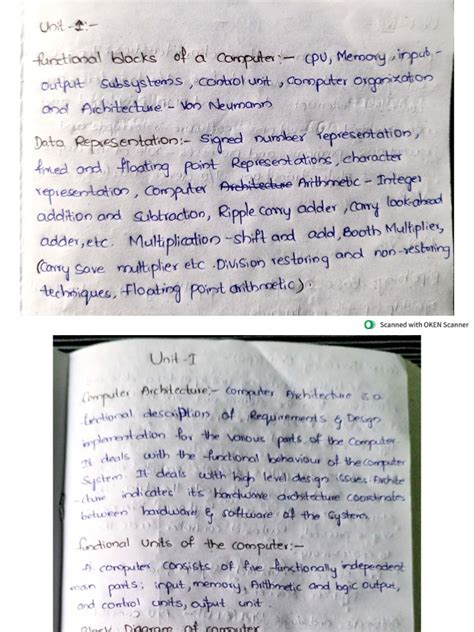 Unit-I:-
functional blocks of a computer:- CPU, Memory, input-
output subsystems, control unit, computer organization
and Architecture - Von Neumann
Data Representation:- signed number representation,
fixed and floating point Representations, character
representation, computer Architecture Arithmetic - Integer
addition and subtraction, Ripple carry adder, carry look-ahead
adder, etc. Multiplication - shift and add, Booth Multiplier,
(Carry Save multiplier etc. Division restoring and non-restoring
techniques, floating point arithmetic).
Scanned with OKEN Scanner
Unit-I
Computer Architecture:- computer Architecture is a
functional description of Requirements & Design
implementation for the various parts of the Computer.
It deals with the functional behaviour of the computer
System. It deals with high level design issues. Archite
-cture indicates its hardware architecture coordinates
between hardware & software of the System.
functional Units of the computer:-
A computer consists of five functionally independent
main parts; input, memory, Arithmetic and logic output,
and control units, output unit.
Block Diagram of computer